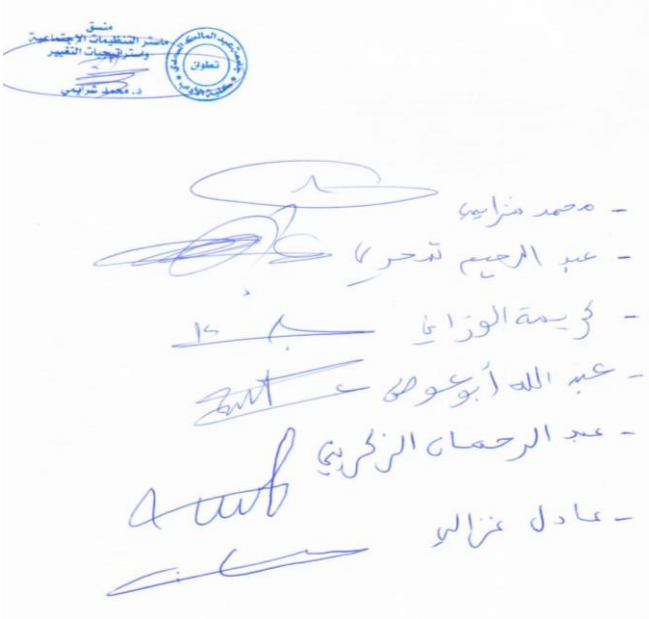 منسق
ماستر التنظيمات الإجتماعية
واستراتيجيات التغيير
د. محمد شرايمي
جامعة عبد المالك السعدي
تطوان
كلية الآداب
- محمد شرايمي
- عبد الرحيم تمحري
- كريمة الوزاني
- عبد الله أبو عوض
- عبد الرحمان الزكريتي
- عادل غزالي